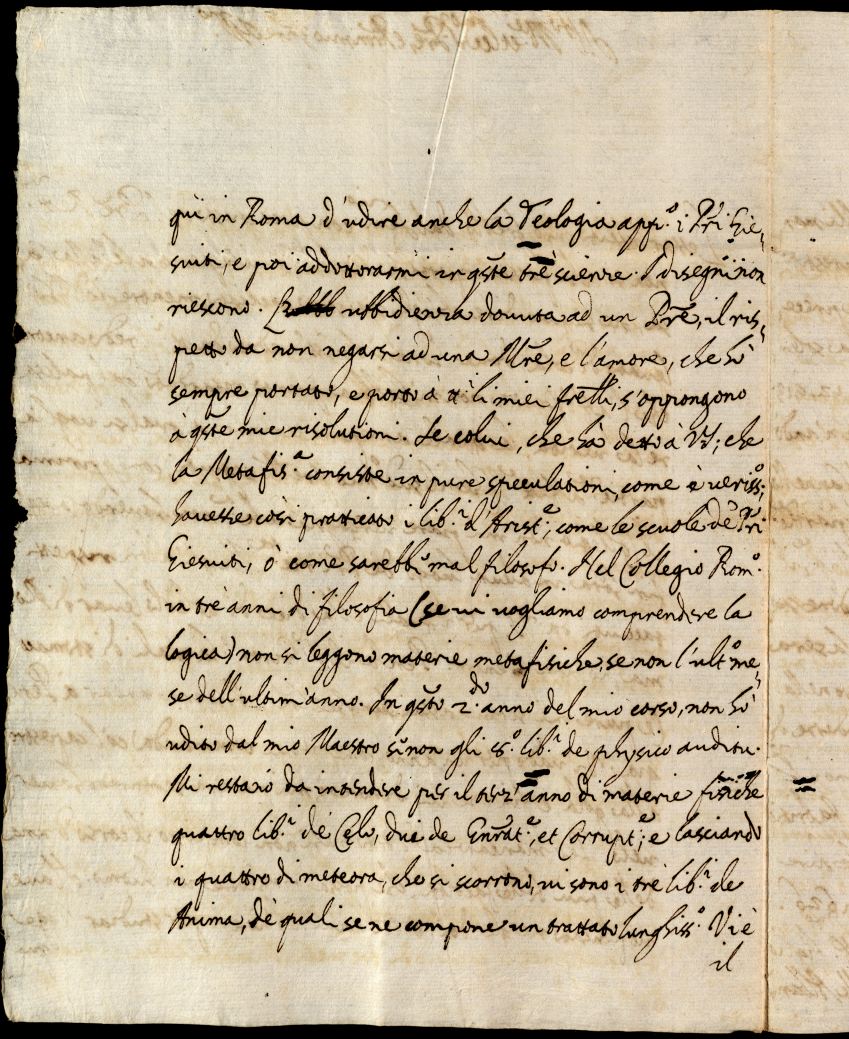 qui in Roma d'udire anche la Teologia app.º i P̃ri Gie-
suiti, e poi addottorarmi in q̃ste trè scienze. I disegni non
riescono. ubbidienza dovuta ad un P̃re, il ris-
petto da non negarsi ad una M̃re, e l'amore, che hò
sempre portato, e porto à li miei fr̃elli, s'oppongono
à q̃ste mie risolutioni. Se colui, che hà detto à VS; che
la Metafis.ª consiste in pure speculationi, come è veriss.º;
havesse così pratticato i lib.i d'Arist.e, come le scuole dè P̃ri
Giesuiti, ò come sarebb.e mal filosofo. Nel Collegio Rom.º
in trè anni di filosofia (se vi vogliamo comprendere la
logica) non si leggono materie metafisiche, se non l'ult.º me-
se dell'ultim'anno. In q̃sto 2.do anno del mio corso, non hò
udito dal mio Maestro sinon gli 8.º lib.i de physico auditu.
Mi restaiò da intendere per il terz'anno di materie fisiche
quattro lib.i de Cęlo, due de Gen̄rat.e, et Corrupt.e; e lasciando
i quattro di meteora, che si scorrono, vi sono i trè lib.i de
Anima, dè quali se ne compone un trattato lunghiss.º Vi è
il